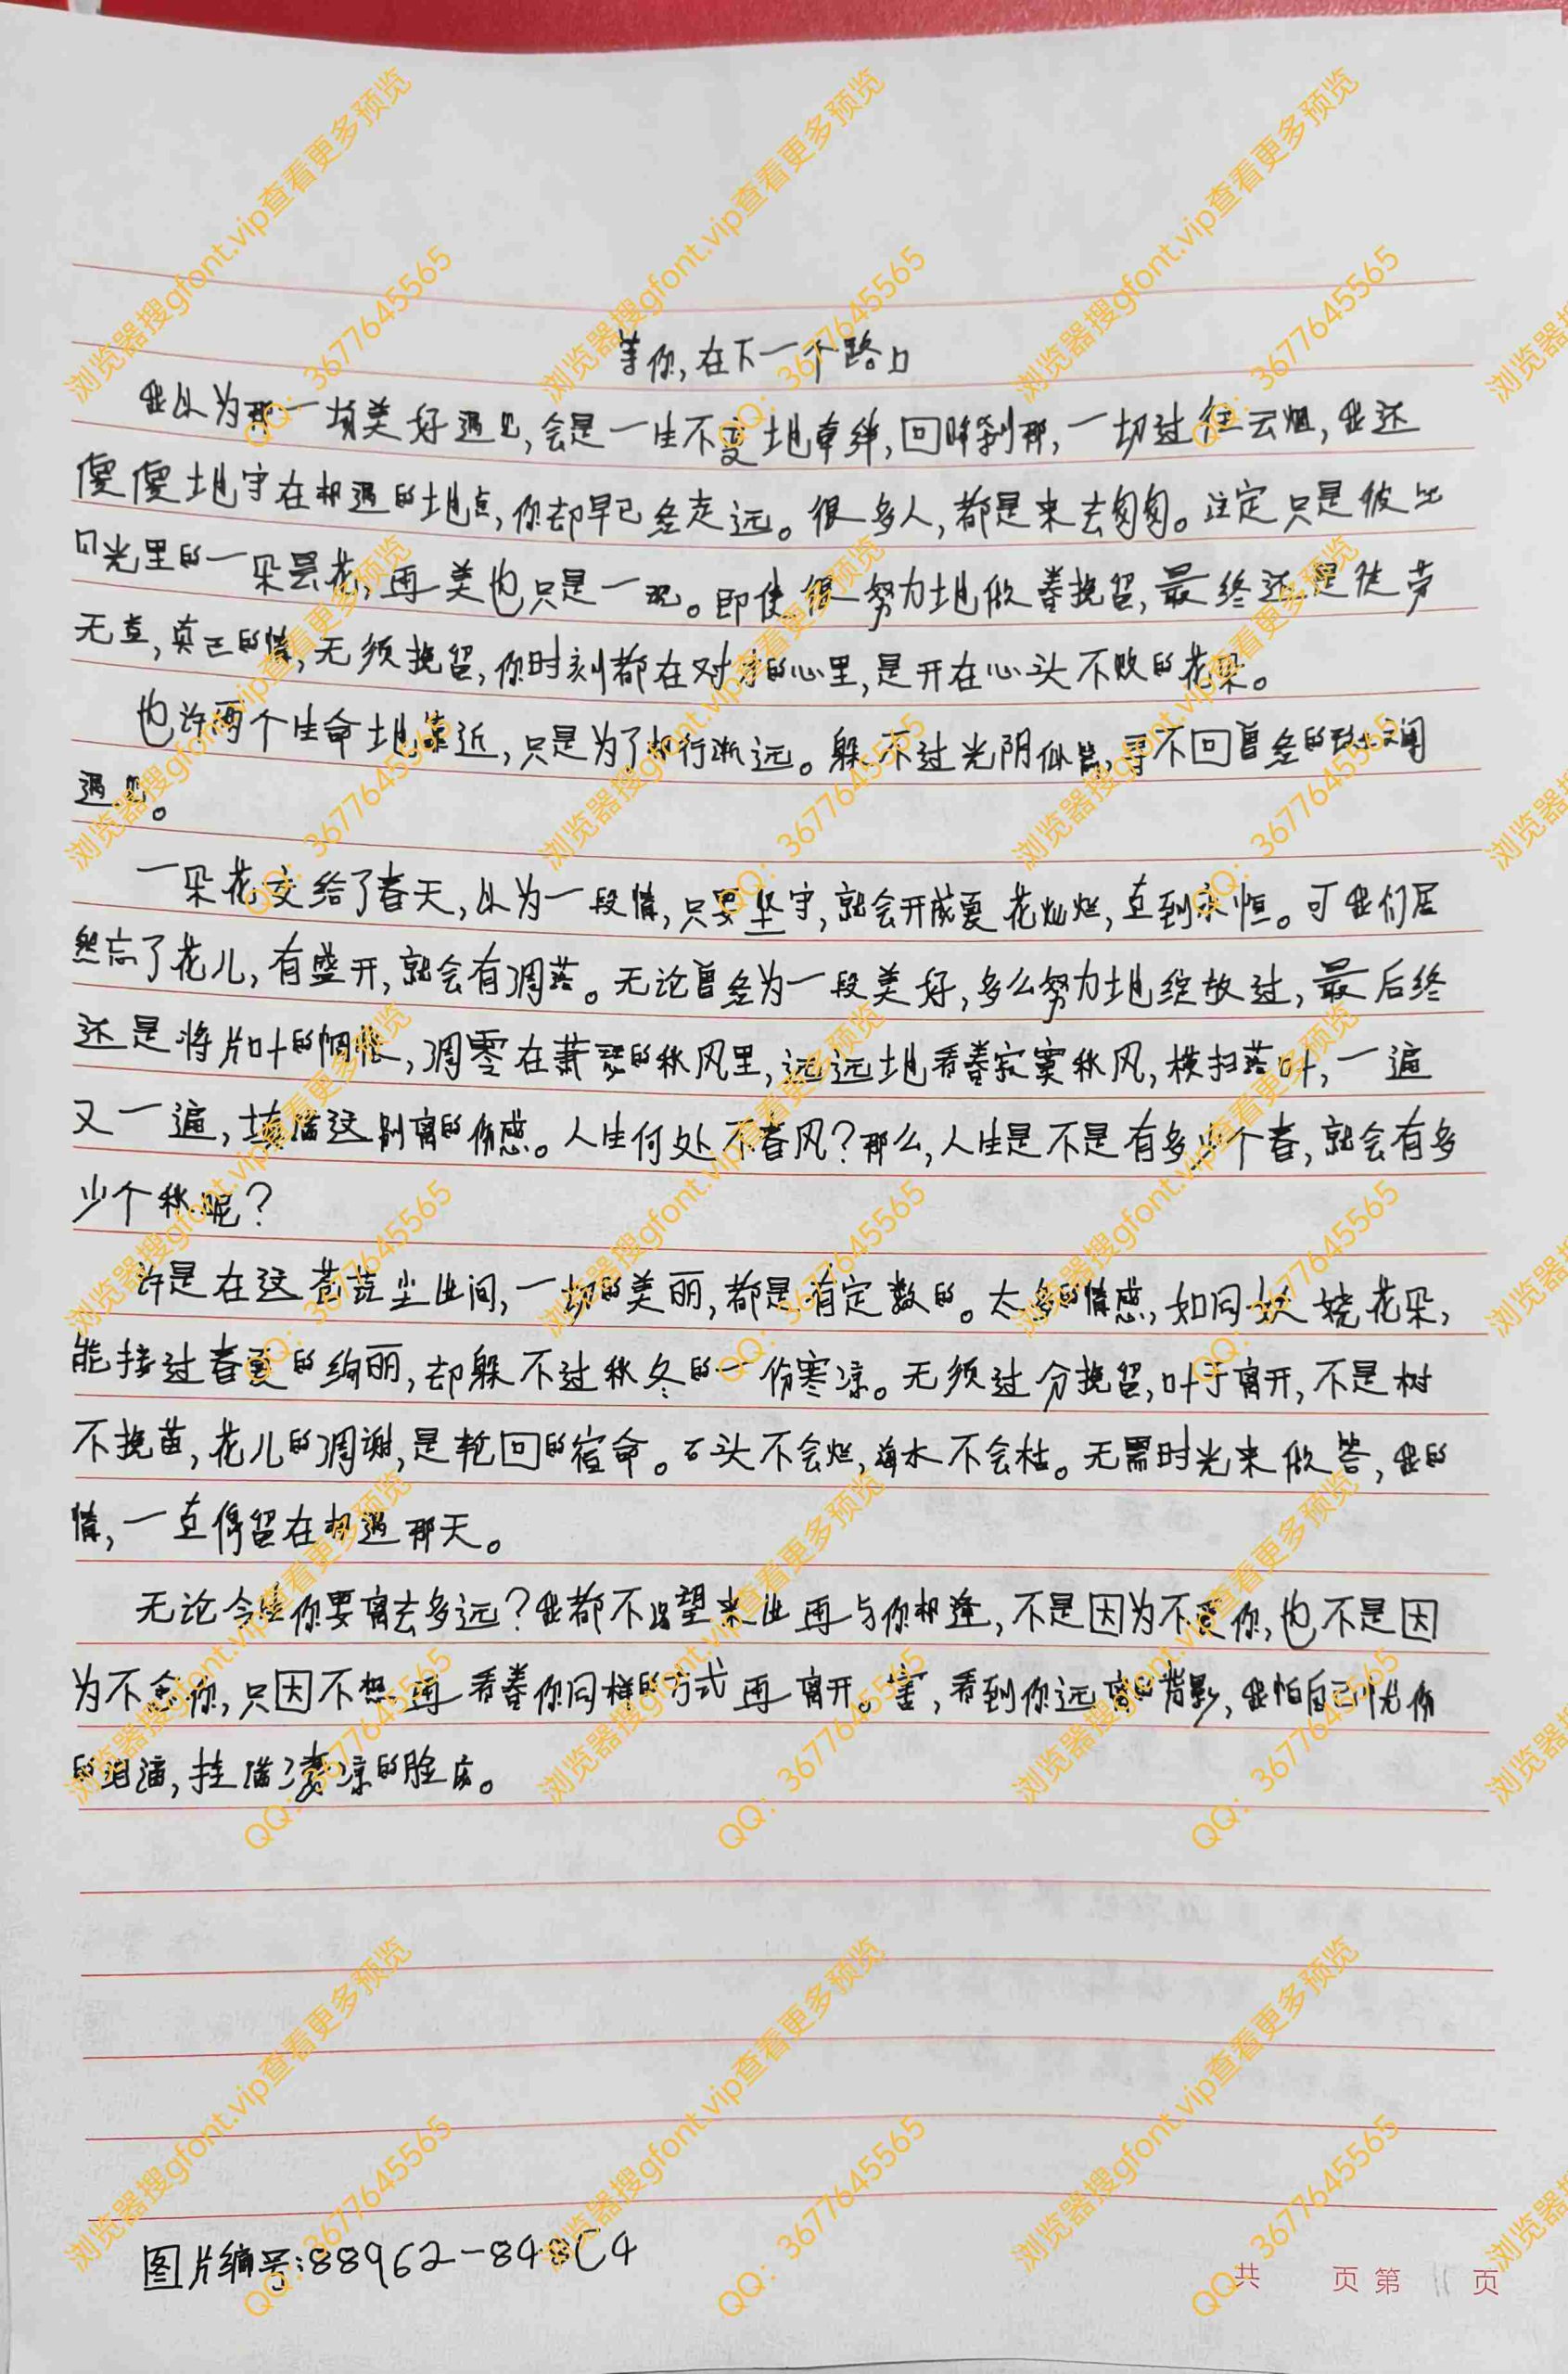 等你,在下一个路口
我以为那一场美好遇见,会是一生不变地牵绊,回眸刹那,一切过往云烟,我还
傻傻地守在相遇的地点,你却早已经走远。很多人,都是来去匆匆。注定只是彼此
时光里的一朵昙花,再美也只是一现。即使很努力地做着挽留,最终还是徒劳
无益,真正的情,无须挽留,你时刻都在对方的心里,是开在心头不败的花朵。
也许两个生命地靠近,只是为了渐行渐远。躲不过光阴似箭,寻不回曾经的
遇见。
一朵花交给了春天,以为一段情,只要坚守,就会开成夏花灿烂,直到永恒。可我们居
然忘了花儿,有盛开,就会有凋落。无论曾经为一段美好,多么努力地绽放过,最后终
还是将片叶的惆怅,凋零在萧瑟的秋风里,远远地看着寂寞秋风,横扫落叶,一遍
又一遍,填满这别离的伤感。人生何处不春风?那么,人生是不是有多少个春,就会有多
少个秋呢?
许是在这苍茫尘世间,一切的美丽,都是有定数的。太多的情感,如同妖娆花朵,
能接过春夏的绚丽,却躲不过秋冬的一份寒凉。无须过分挽留,叶子离开,不是树
不挽留,花儿的凋谢,是轮回的宿命。石头不会烂,海水不会枯。无需时光来做答,我的
情,一直停留在相遇那天。
无论今生你要离去多远?我都不渴望来世再与你相逢,不是因为不爱你,也不是因
为不念你,只因不想再看着你同样的方式再离开。害,看到你远离的背影,我怕自己忧伤
的泪滴,挂满了凄凉的脸庞。
图片编号:88962-848C4
共 页 第 11 页
浏览器搜gfont.vip查看更多预览
QQ: 3677645565